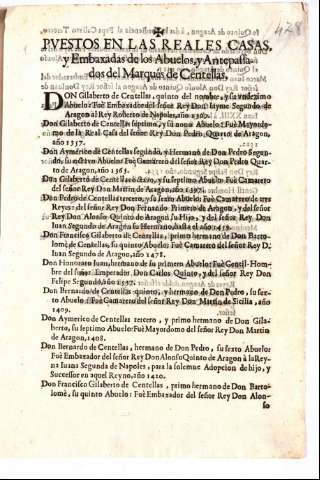 428
PVESTOS EN LAS REALES CASAS,
y Embaxadas de los Abuelos, y Antepassa-
dos del Marquès de Centellas.
DON Gilaberto de Centellas, quinto del nombre, y su vndecimo
Abuelo: Fuè Embaxador del señor Rey Don Jayme Segundo de
Aragon à el Rey Roberto de Napoles, año 1309.
Don Gilaberto de Centellas septimo, y su nono Abuelo: Fuè Mayordo-
mo de la Real Casa del señor Rey Don Pedro, Quarto de Aragon,
año 1357.
Don Aymerico de Centellas segundo, y Hermano de Don Pedro Segun-
do, su octavo Abuelo: Fuè Camarero del señor Rey Don Pedro Quar-
to de Aragon, año 1363.
Don Gilaberto de Centellas, y su septimo Abuelo: Fuè Camarero
del señor Rey Don Martin de Aragon, año 1397.
Don Pedro de Centellas tercero, y su sexto Abuelo: Fuè Camarero de tres
Reyes: del señor Rey Don Fernando Primero de Aragon, y del señor
Rey Don Alonso Quinto de Aragon su Hijo, y del señor Rey Don
Juan Segundo de Aragon su Hermano, hasta el año 1459.
Don Francisco Gilaberto de Centellas, primo hermano de Don Barto-
lomè, de Centellas, su quinto Abuelo: Fuè Camarero del señor Rey D.
Juan Segundo de Aragon, año 1478.
Don Honorato Juan, hermano de su primero Abuelo: Fuè Gentil-Hom-
bre del señor Emperador Don Carlos Quinto, y del señor Rey Don
Felipe Segundo, Año 1550.
Don Bernardo de Centellas quinto, y hermano de Don Pedro, su sex-
to Abuelo: Fuè Camarero del señor Rey Don Martin de Sicilia, año
1409.
Don Aymerico de Centellas tercero, y primo hermano de Don Gila-
berto, su septimo Abuelo: Fuè Mayordomo del señor Rey Don Martin
de Aragon, 1408.
Don Bernardo de Centellas, hermano de Don Pedro, su sexto Abuelo:
Fuè Embaxador del señor Rey Don Alonso Quinto de Aragon à la Rey-
na Juana Segunda de Napoles, para la solemne Adopcion de hijo, y
Successor en aquel Reyno, año 1420.
Don Francisco Gilaberto de Centellas, primo hermano de Don Barto-
lomè, su quinto Abuelo: Fuè Embaxador del señor Rey Don Alon-
so